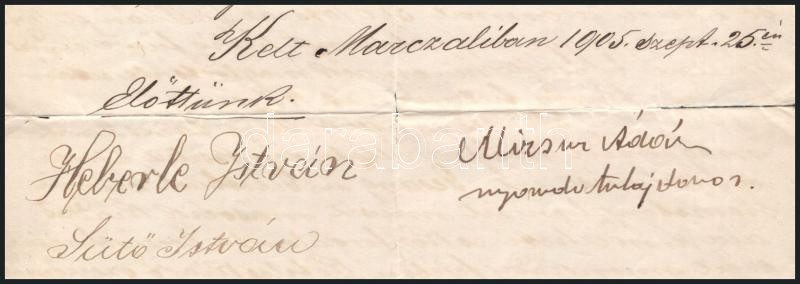 Kelt Marczaliban 1905. szept. 25.én
Előttünk.
Heberle István
Sütő István
Ádám
nyomda tulajdonos.
darabanth